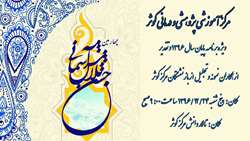 مرکز آموزشی پژوهشی و درمانی کوثر
ویژه برنامه پایان سال ۱۳۹۶ و تقدیر
از همکاران نمونه و تجلیل از بازنشستگان مرکز کوثر
زمان: پنج شنبه ۱۳۹۶/۱۲/۲۴ ساعت ۹:۰۰ صبح
مکان: تالار دانش مرکز کوثر